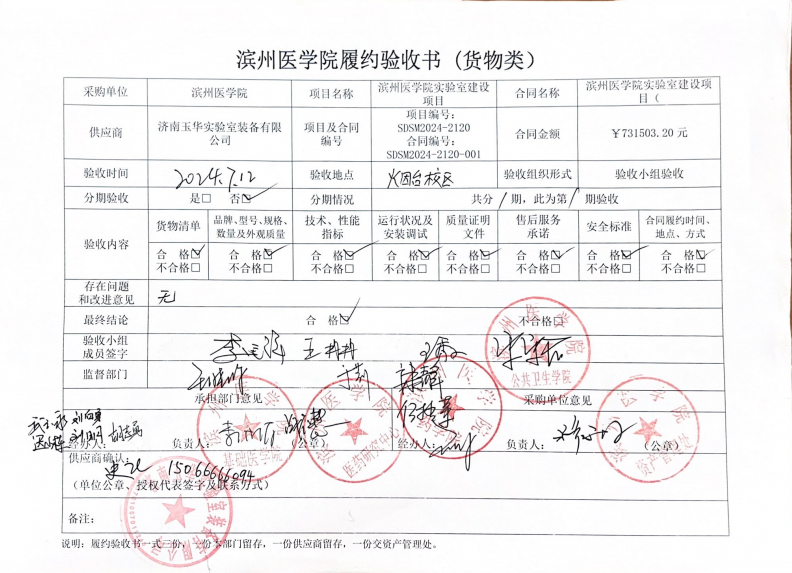 滨州医学院履约验收书（货物类）
采购单位 滨州医学院 项目名称 滨州医学院实验室建设项目 合同名称 滨州医学院实验室建设项目（
供应商 济南玉华实验室装备有限公司 项目及合同编号 项目编号：SDSM2024-2120 合同编号：SDSM2024-2120-001 合同金额 ￥731503.20 元
验收时间 2024.7.12 验收地点 火团台校区 验收组织形式 验收小组验收
分期验收 是□ 否☑ 分期情况 共分 / 期，此为第 / 期验收
验收内容 货物清单 品牌、型号、规格、数量及外观质量 技术、性能指标 运行状况及安装调试 质量证明文件 售后服务承诺 安全标准 合同履约时间、地点、方式
合 格☑ 合 格☑ 合 格☑ 合 格☑ 合 格☑ 合 格☑ 合 格☑ 合 格☑
不合格□ 不合格□ 不合格□ 不合格□ 不合格□ 不合格□ 不合格□ 不合格□
存在问题和改进意见 无
最终结论 合 格☑ 不合格□
验收小组成员签字
监督部门
公共卫生学院
承担部门意见 采购单位意见
经办人： 负责人： （公章） 经办人： 负责人： （公章）
基础医学院
供应商确认：
15066666094
（单位公章、授权代表签字及联系方式）
备注：
说明：履约验收书一式三份，一份本部门留存，一份供应商留存，一份交资产管理处。